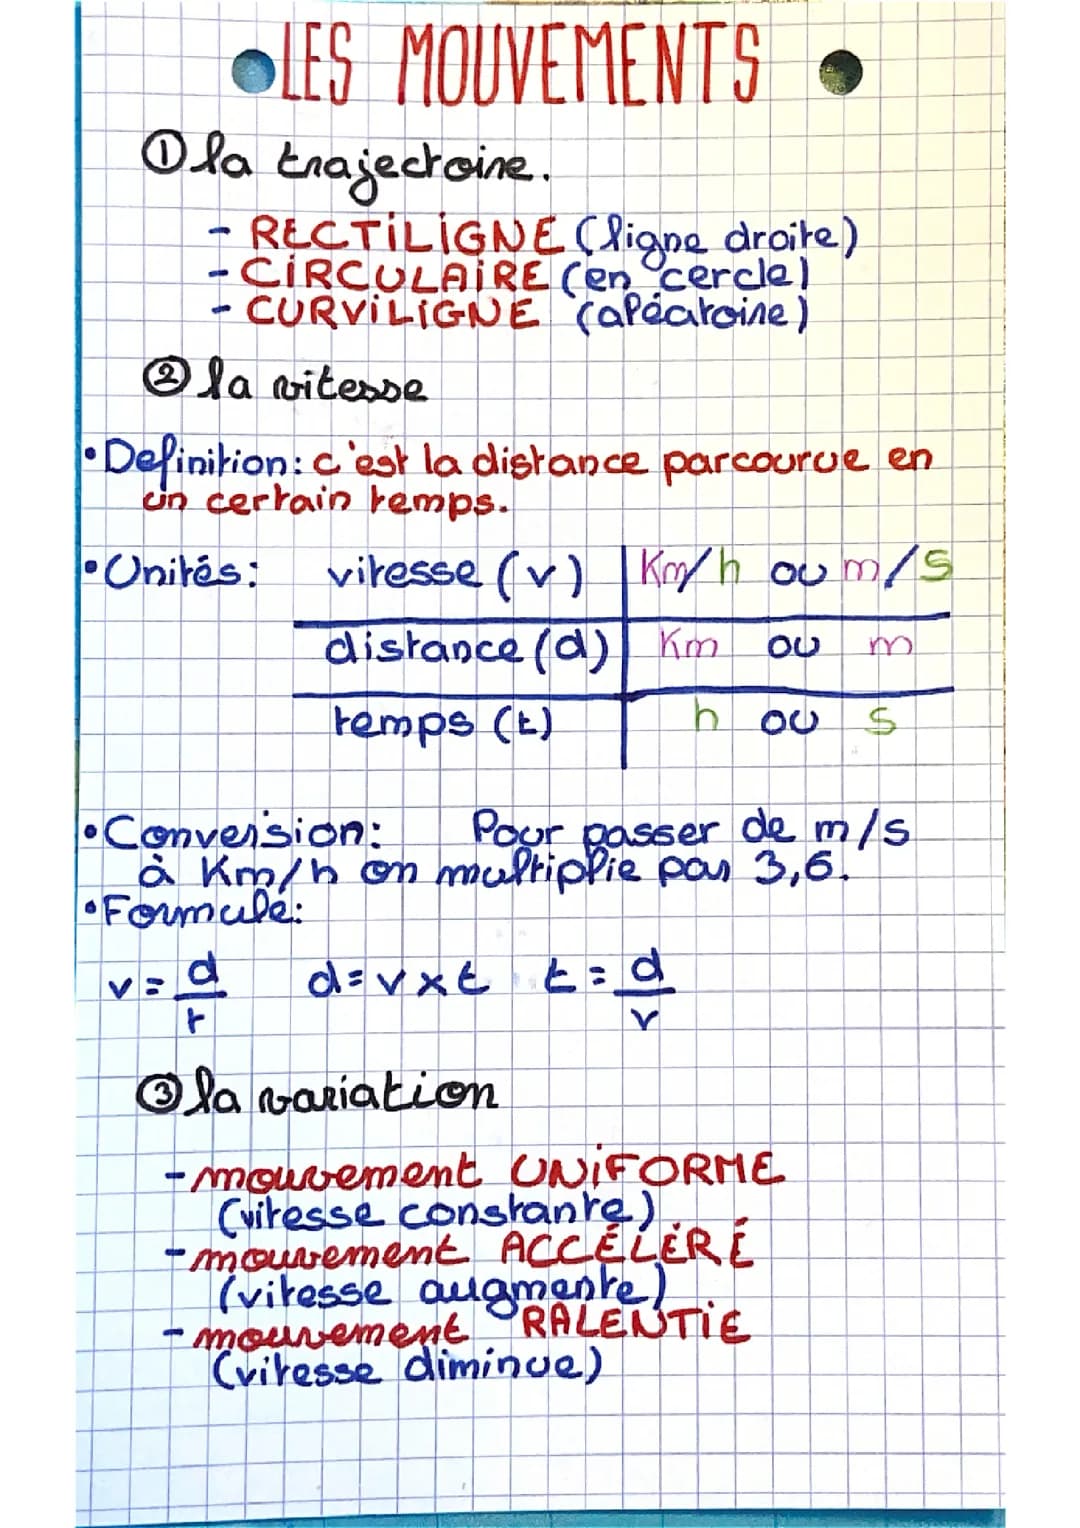 LES MOUVEMENTS
① la trajectoire.
- RECTILIGNE (ligne droite)
- CIRCULAIRE (en cercle)
- CURVILIGNE (aléatoire)
② la vitesse
• Definition: c'est la distance parcourue en
un certain temps.
• Unités: vitesse (v) Km/h ou m/s
distance (d) Km ou m
temps (t) h ou s
• Conversion: Pour passer de m/s
à Km/h on multiplie par 3,6.
• Formule:
v = d/t d = v x t t = d/v
③ la variation
- mouvement UNIFORME
(vitesse constante)
- mouvement ACCÉLÉRÉ
(vitesse augmente)
- mouvement RALENTIE
(vitesse diminue)